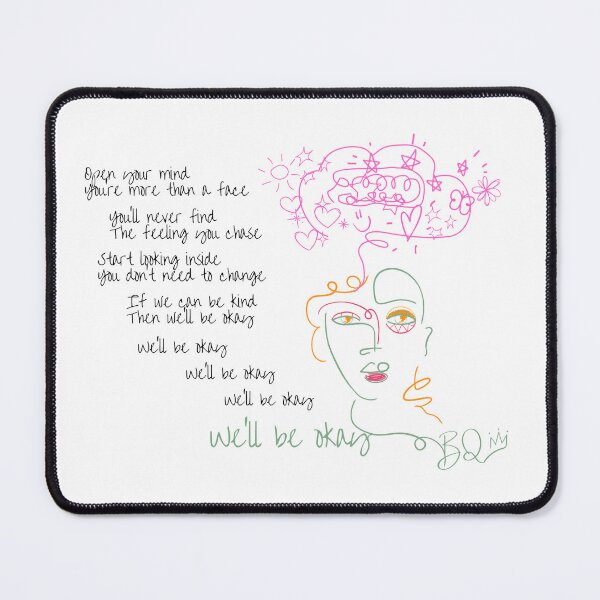 Open your mind
You're more than a face
You'll never find
The feeling you chase
Start looking inside
You don't need to change
If we can be kind
Then we'll be okay
We'll be okay
We'll be okay
We'll be okay
We'll be okay
BQ